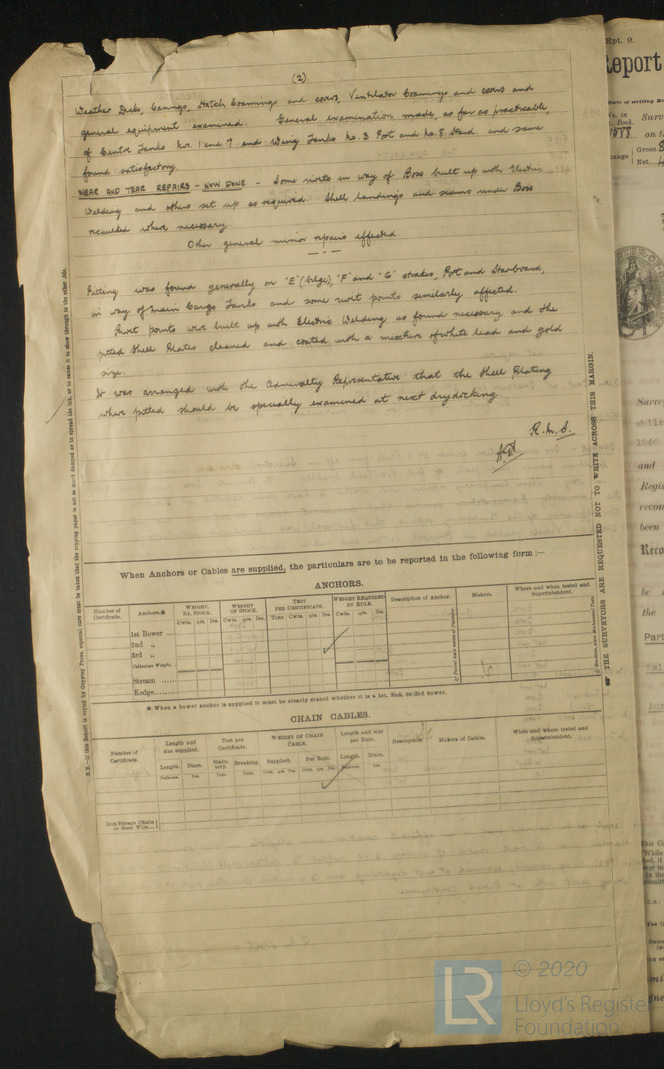 (2).
Weather Decks, Casings, Hatch Coamings and covers, Ventilator Coamings and covers and
general equipment examined. General examination made, as far as practicable,
of Centre Tanks Nos. 1 and 7 and Wing Tanks No. 3 Port and No. 8 Starb. and same
found satisfactory.
WEAR AND TEAR REPAIRS - NOW DONE - Some rivets in way of Boss built up with Electric
Welding and others set up as required. Shell landings and seams under Bows
recaulked where necessary.
Other general minor repairs effected
Pitting was found generally on "E" (bilge), "F" and "G" strakes, Port and Starboard,
in way of main Cargo Tanks and some rivet points similarly affected.
Rivet points were built up with Electric Welding as found necessary, and the
pitted Shell Plates cleaned and coated with a mixture of white lead and gold
size.
It was arranged with the Admiralty Representative that the Shell Plating
where pitted should be specially examined at next drydocking.
R.M.S.
When Anchors or Cables are supplied, the particulars are to be reported in the following form:—
ANCHORS.
Number of Certificate. Anchors.* WEIGHT. EX. STOCK. WEIGHT OF STOCK. TEST PER CERTIFICATE. WEIGHT REQUIRED BY RULE. Description of Anchor. Makers. Where and when tested and Superintendent.
Cwts. qrs. lbs. Cwts. qrs. lbs. Tons Cwts. qrs. lbs. Cwts. qrs. lbs.
1st Bower ...
2nd „
3rd „
Collective Weight.
Stream ......
Kedge.........
* When a bower anchor is supplied it must be clearly stated whether it is a 1st, 2nd, or 3rd bower.
CHAIN CABLES.
Number of Certificate. Length and size supplied. Test per Certificate. WEIGHT OF CHAIN CABLE. Length and size per Rule. Description. Makers of Cables. When and where tested and Superintendent.
Length. Diam. Statutory. Breaking Supplied. Per Rule. Length. Diam.
Fathoms. Ins. Tons Tons Cwts. qrs. lbs. Cwts. qrs. lbs. Fathoms. Ins.
Iron Stream Chain or Steel Wire...
THE SURVEYORS ARE REQUESTED NOT TO WRITE ACROSS THIS MARGIN.
Rpt. 9.
Report
Date of writing
Surv
on t
Gross
Net
Surve
1940
and
Regis
recom
been
Reco
be
the
Part
LR
© 2020
Lloyd's Register
Foundation